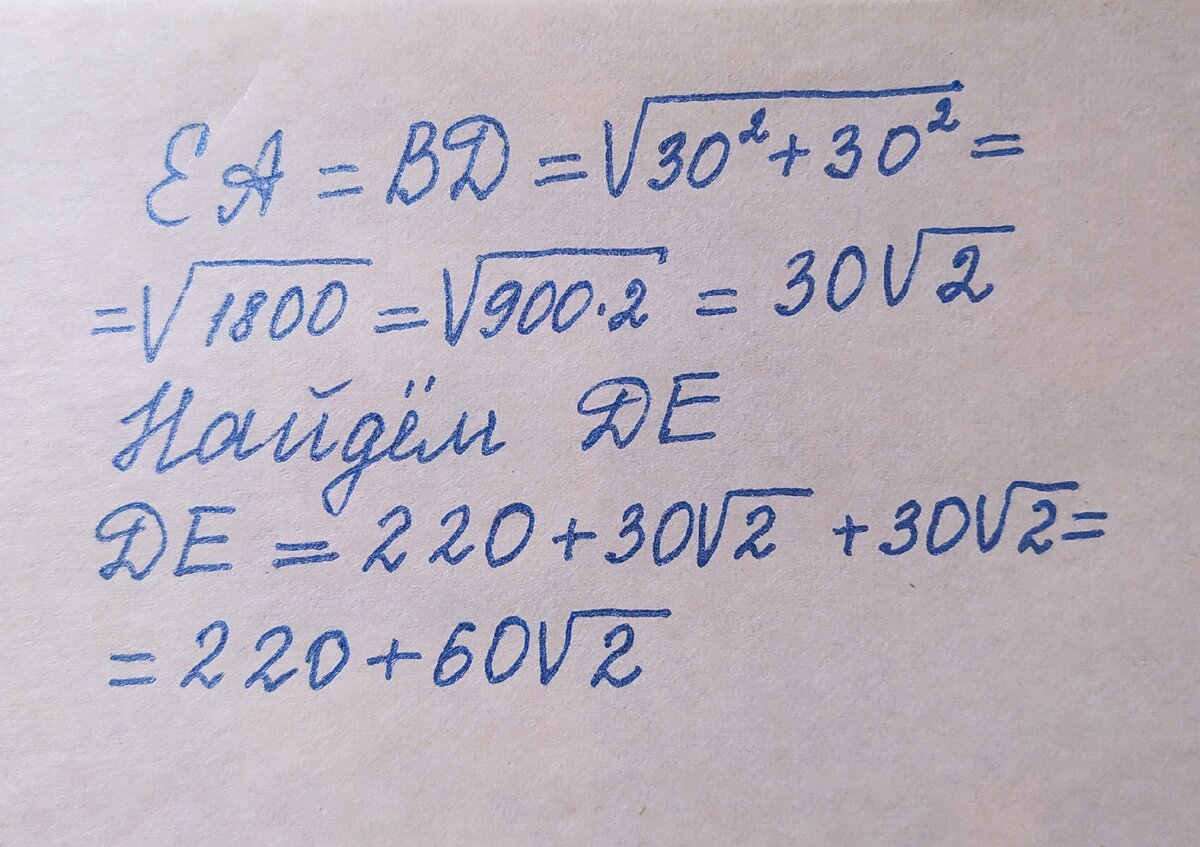 EA = BD = √30² + 30² =
= √1800 = √900·2 = 30√2
Найдём DE
DE = 220 + 30√2 + 30√2 =
= 220 + 60√2